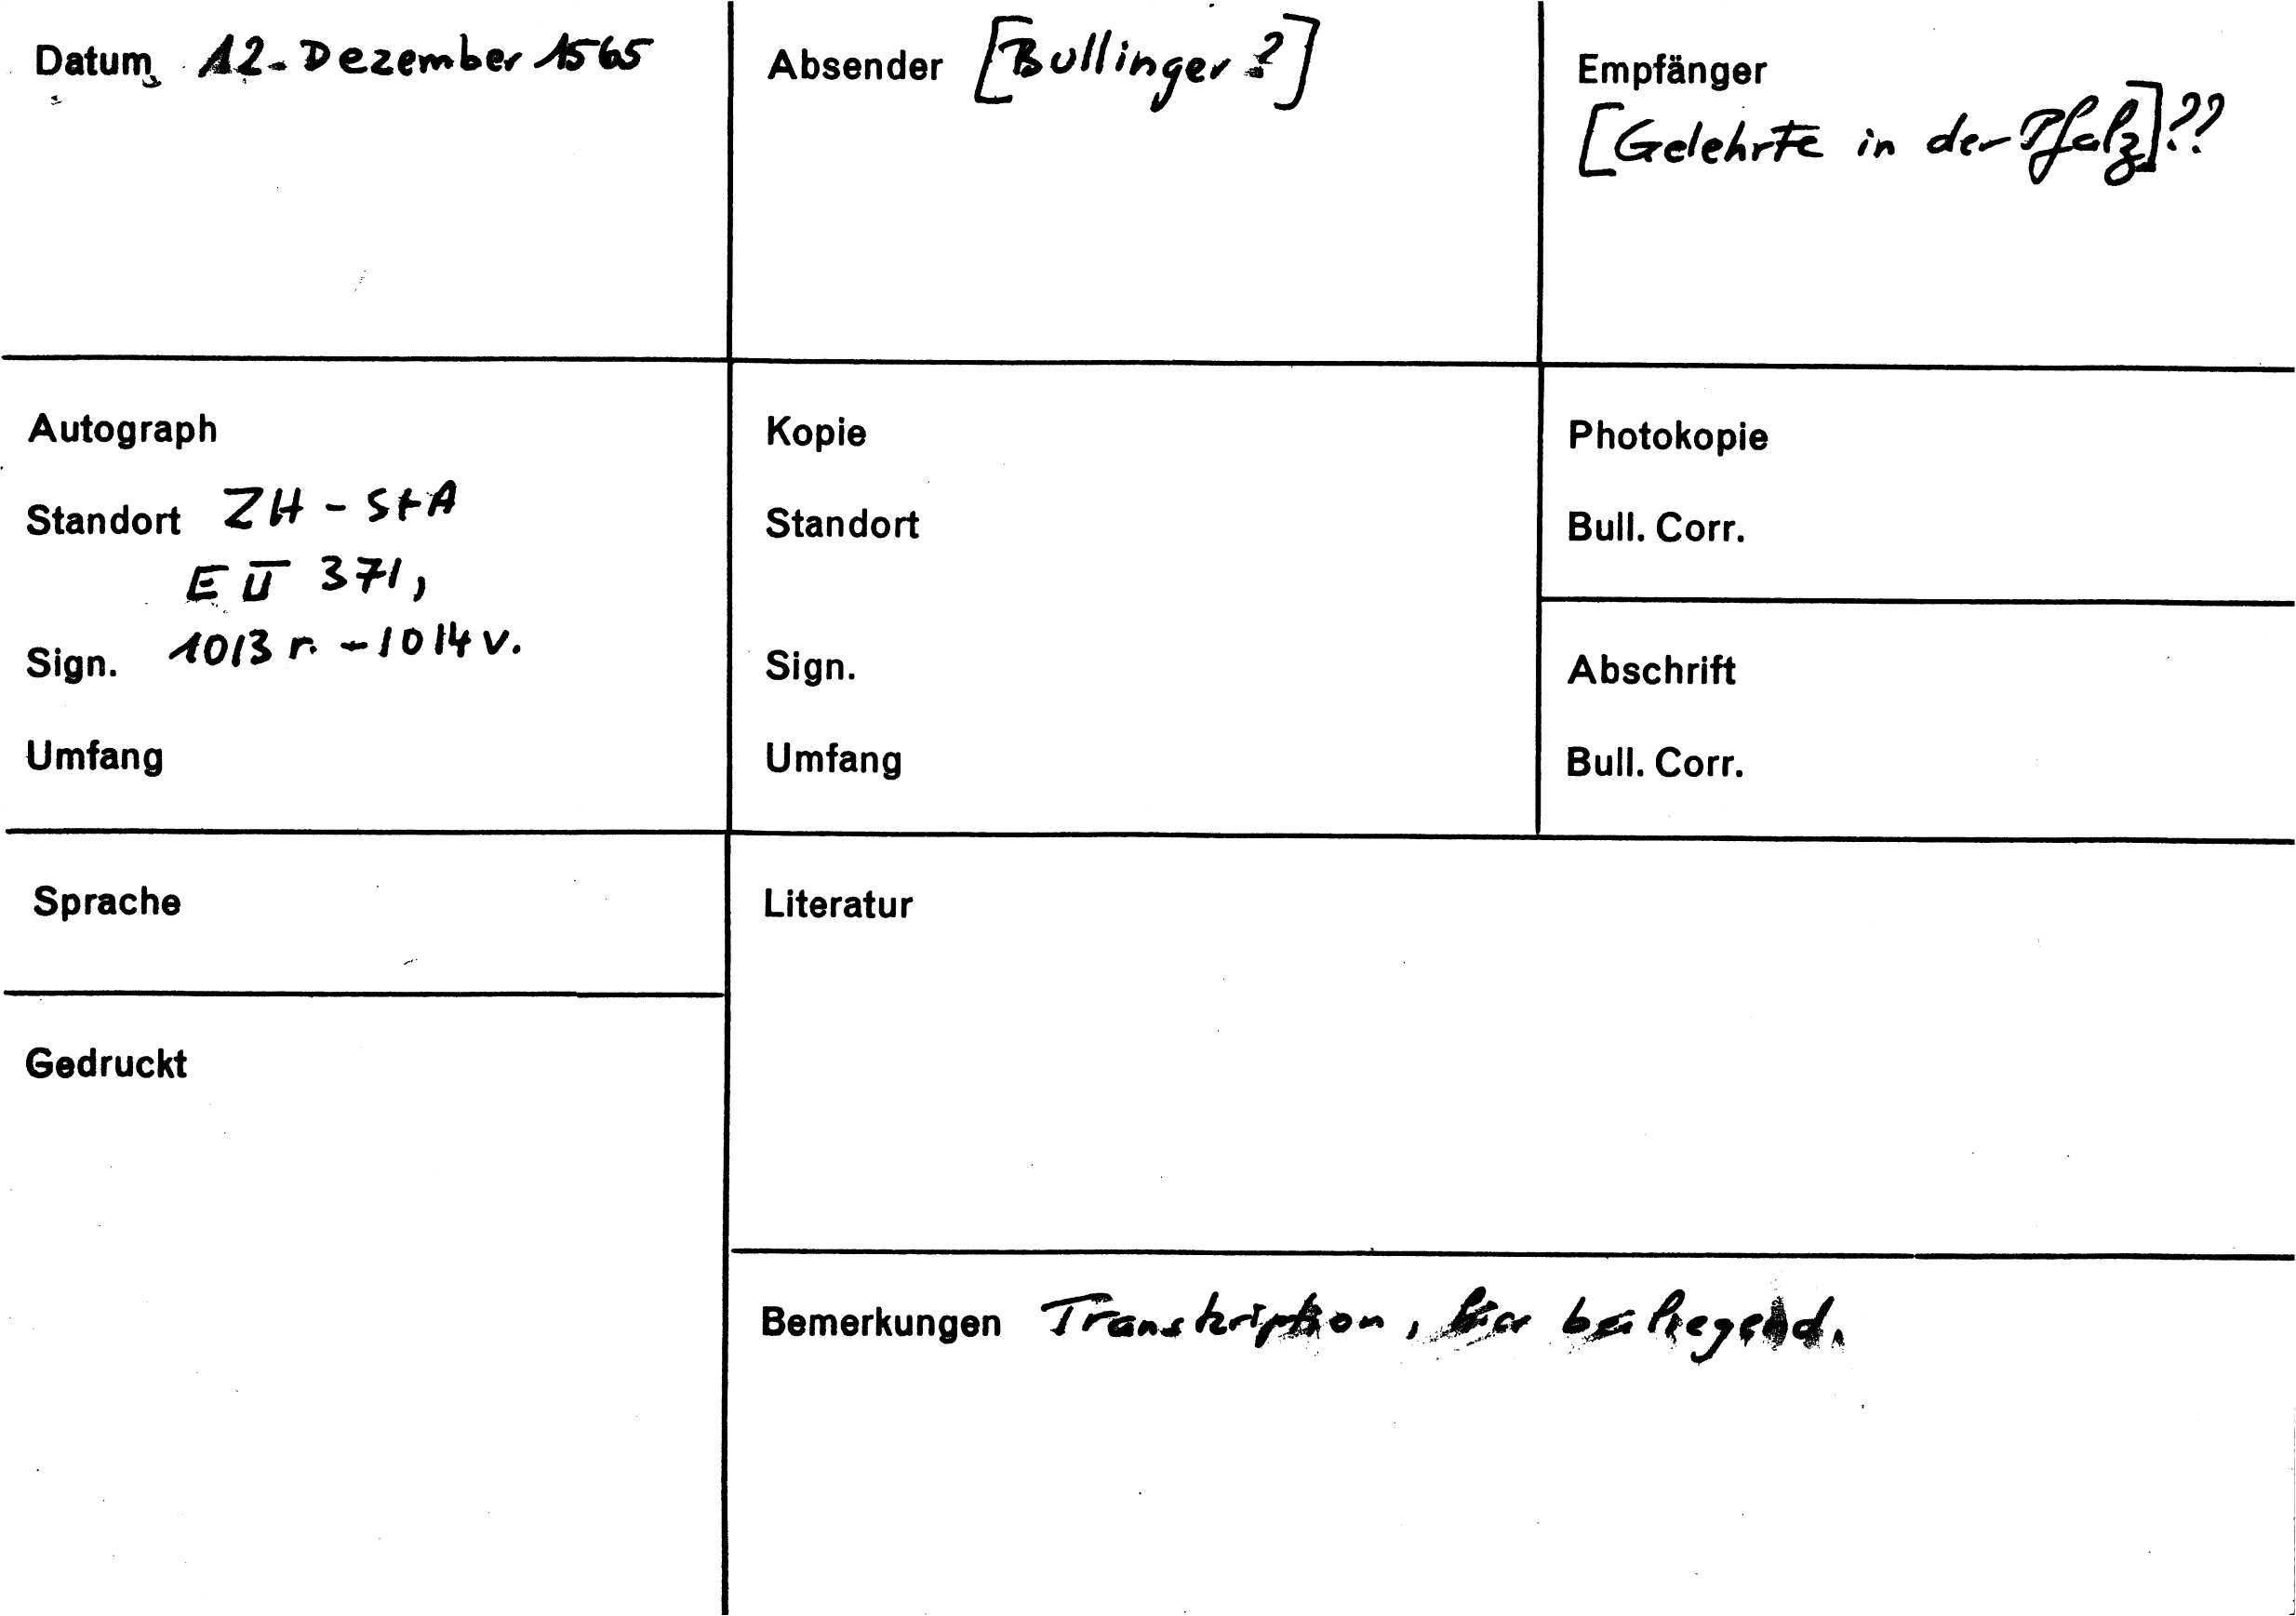 Datum 12. Dezember 1565
Absender [Bullinger?]
Empfänger
[Gelehrte in der Pfalz]??
Autograph
Standort ZH - StA
E II 371,
Sign. 1013 r. - 1014 v.
Umfang
Kopie
Standort
Sign.
Umfang
Photokopie
Bull. Corr.
Abschrift
Bull. Corr.
Sprache
Gedruckt
Literatur
Bemerkungen Transkription, hier beiliegend.